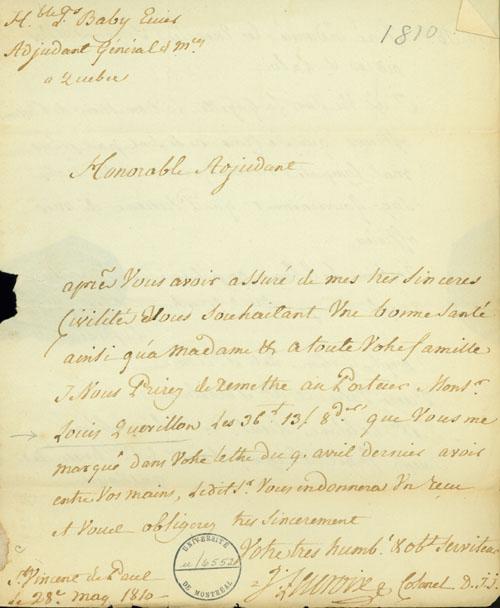 Hble. Gs. Baby Ecuier
Adjudant Général d Mces
a Quebec
1810
Honorable Adjudant
après Vous avoir assuré de mes tres sinceres
Civilité & Vous Souhaitant Une bonne Santé
ainsi qu'a Madame & a toute Votre famille
Vous Prirez de remettre au Porteur Monsr
Louis Querillon Les 36 13/ 8d que Vous me
marqué dans Votre lettre du 9. avril dernier avoir
entre Vos mains, Ledit Sr. Vous en donnera Un reçu
et Vous obligerez tres sincerement
Votre tres humb. & obt Serviteur
Colonel D. I. J.
St. Vincent de Paul
le 28e. may 1810
UNIVERSITÉ
DE MONTRÉAL